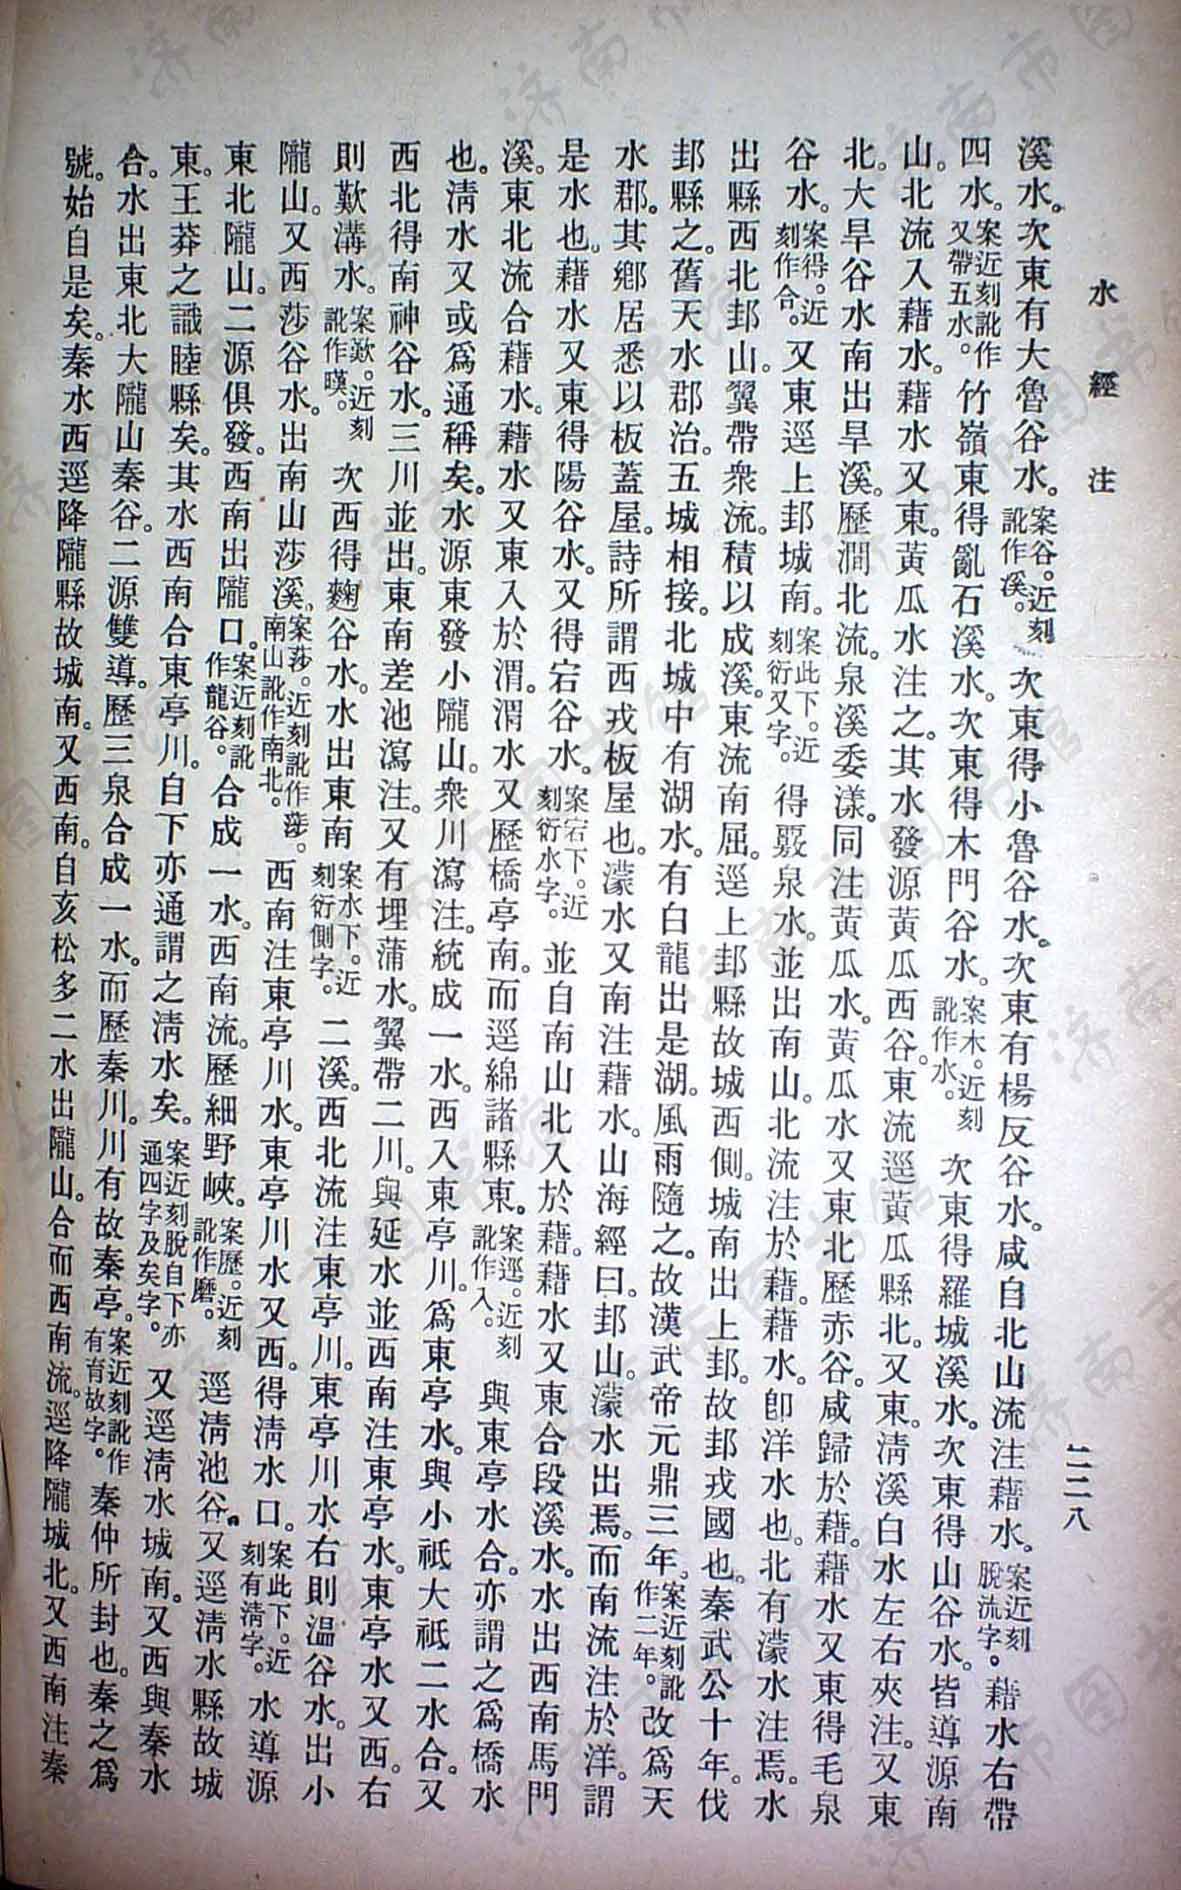 水經注
二二八
溪水。次東有大魯谷水。案谷。近刻訛作溪。次東得小魯谷水。次東有楊反谷水。咸自北山流注藉水。案近刻脫流字。藉水右帶
四水。案近刻訛作又帶五水。竹嶺東得亂石溪水。次東得木門谷水。案木。近刻訛作水。次東得羅城溪水。次東得山谷水。皆導源南
山。北流入藉水。藉水又東。黃瓜水注之。其水發源黃瓜西谷。東流逕黃瓜縣北。又東。清溪白水左右夾注。又東
北。大旱谷水南出旱溪。歷澗北流。泉溪委漾。同注黃瓜水。黃瓜水又東北歷赤谷。咸歸於藉。藉水又東得毛泉
谷水。案得。近刻作合。又東逕上邽城南。案此下。近刻衍又字。得覈泉水。並出南山。北流注於藉。藉水。卽洋水也。北有濛水注焉。水
出縣西北邽山。翼帶衆流。積以成溪。東流南屈。逕上邽縣故城西側。城南出上邽。故邽戎國也。秦武公十年。伐
邽縣之。舊天水郡治。五城相接。北城中有湖水。有白龍出是湖。風雨隨之。故漢武帝元鼎三年。案近刻訛作二年。改爲天
水郡。其鄉居悉以板蓋屋。詩所謂西戎板屋也。濛水又南注藉水。山海經曰。邽山。濛水出焉。而南流注於洋。謂
是水也。藉水又東得陽谷水。又得宕谷水。案宕下。近刻衍水字。並自南山北入於藉。藉水又東合段溪水。水出西南馬門
溪。東北流合藉水。藉水又東入於渭。渭水又歷橋亭南。而逕綿諸縣東。案逕。近刻訛作入。與東亭水合。亦謂之爲橋水
也。清水又或爲通稱矣。水源東發小隴山。衆川瀉注。統成一水。西入東亭川。爲東亭水。與小祗大祗二水合。又
西北得南神谷水。三川並出。東南差池瀉注。又有埋蒲水。翼帶二川。與延水並西南注東亭水。東亭水又西。右
則歎溝水。案歎。近刻訛作暵。次西得麴谷水。水出東南案水下。近刻衍側字。二溪。西北流注東亭川。東亭川水右則溫谷水。出小
隴山。又西莎谷水。出南山莎溪。案莎。近刻訛作莏。南山訛作南北。西南注東亭川水。東亭川水又西。得清水口。案此下。近刻有清字。水導源
東北隴山。二源俱發。西南出隴口。案近刻訛作龍谷。合成一水。西南流。歷細野峽。案歷。近刻訛作磨。逕清池谷。又逕清水縣故城
東。王莽之識睦縣矣。其水西南合東亭川。自下亦通謂之清水矣。案近刻脫自下亦通四字及矣字。又逕清水城南。又西與秦水
合。水出東北大隴山秦谷。二源雙導。歷三泉合成一水。而歷秦川。川有故秦亭。案近刻訛作有育故字。秦仲所封也。秦之爲
號。始自是矣。秦水西逕降隴縣故城南。又西南。自亥松多二水出隴山。合而西南流。逕降隴城北。又西南注秦